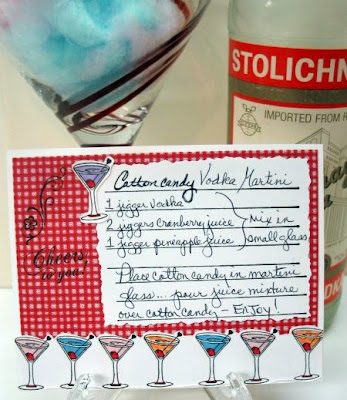 STOLICHN
IMPORTED FROM R
Cotton candy Vodka Martini
1 jigger vodka
2 jiggers cranberry juice
1 jigger pineapple juice
mix in
small glass
Place cotton candy in martini
glass... pour juice mixture
over cotton candy - ENJOY!
Cheers,
to you!